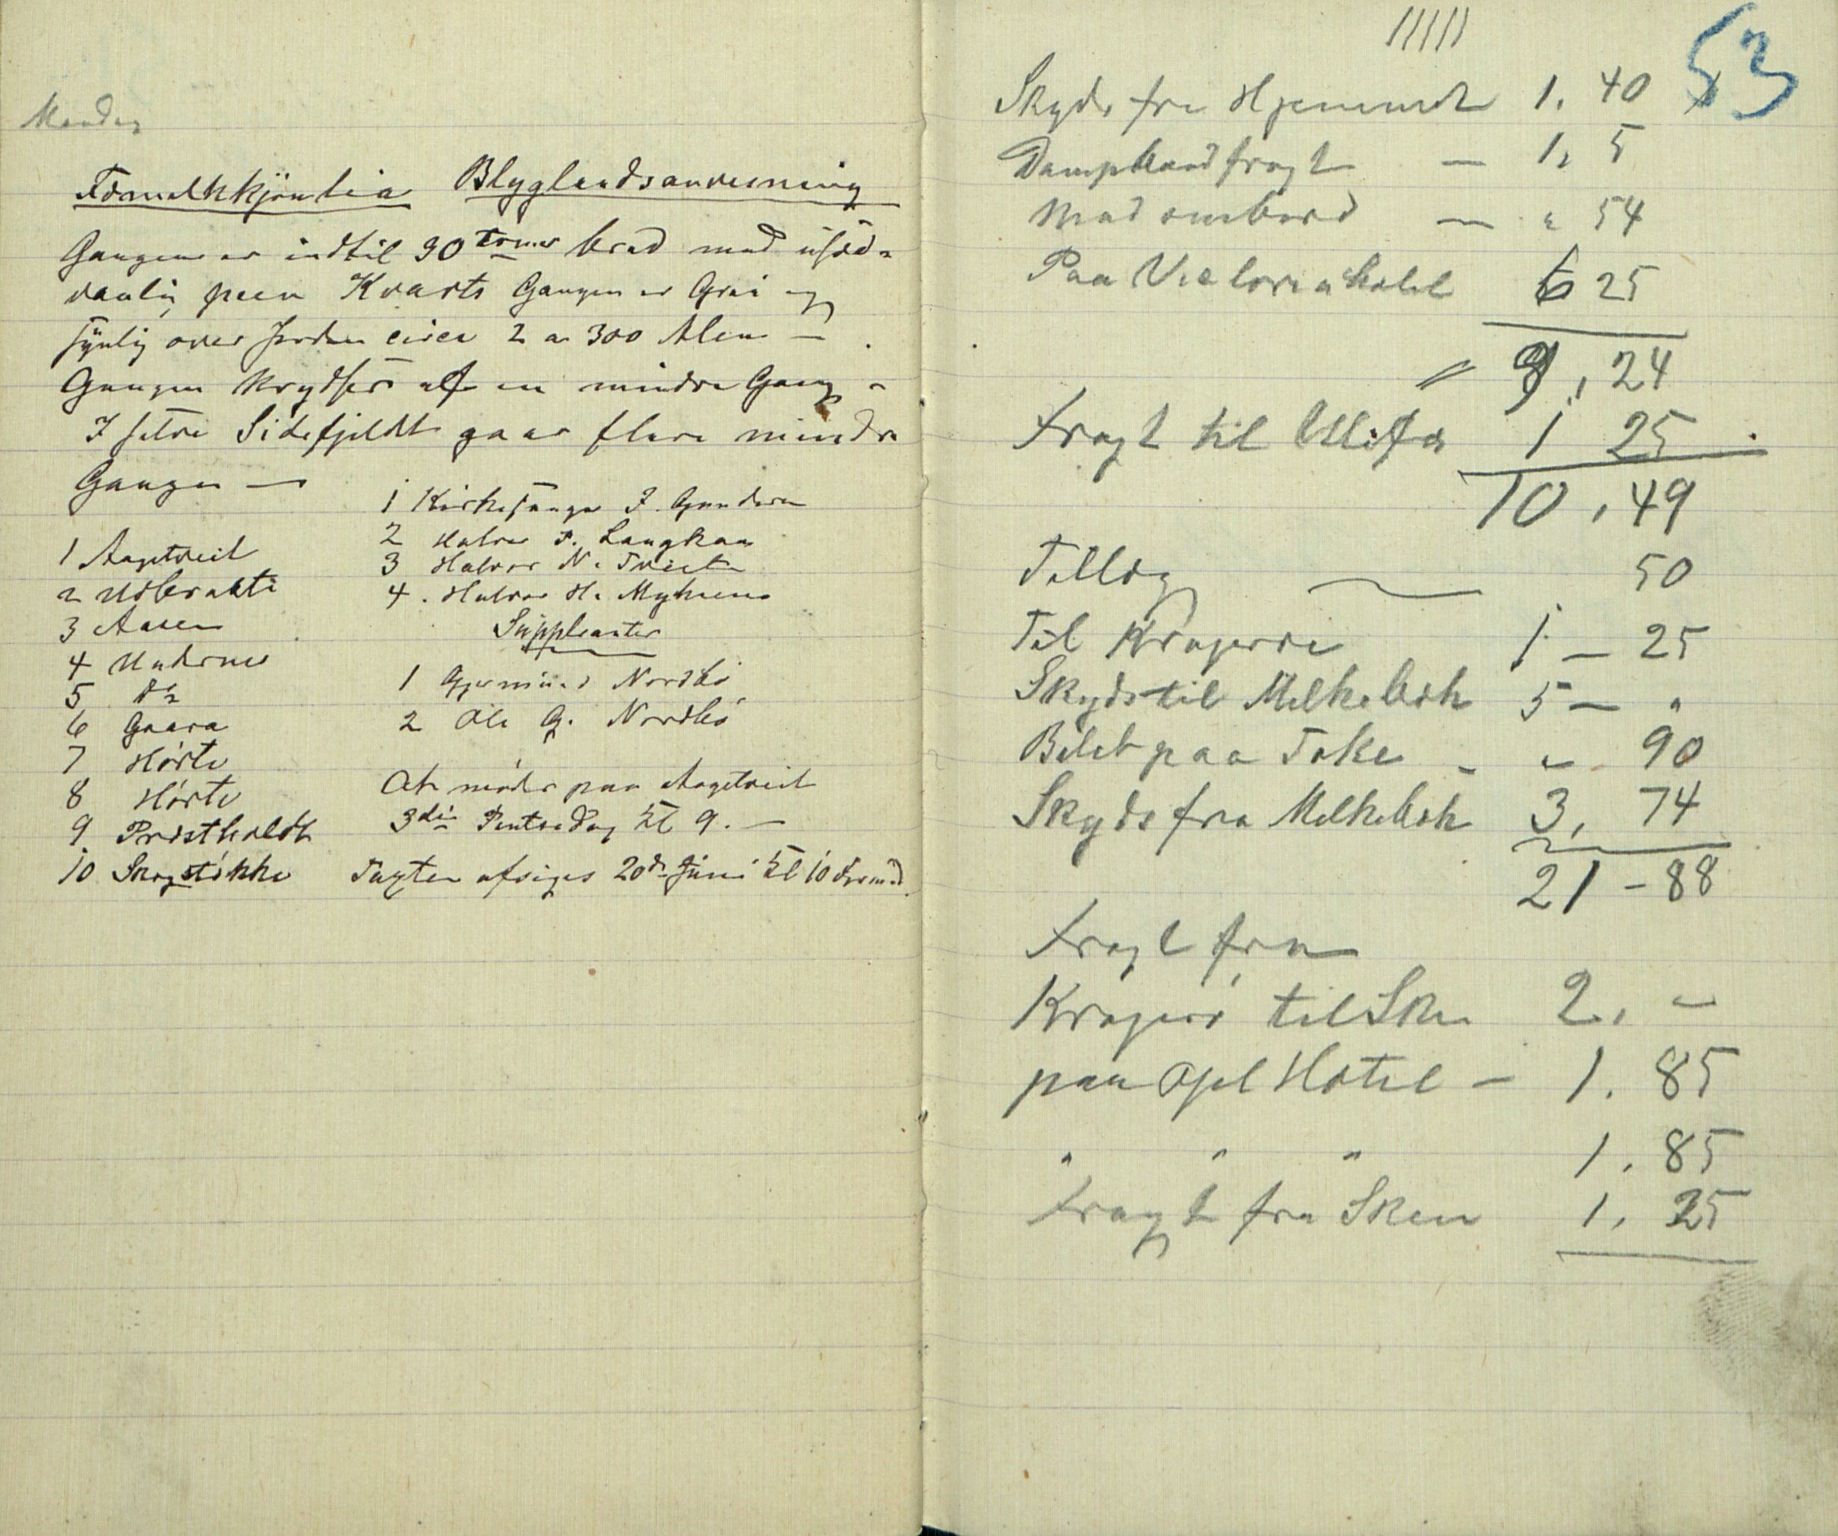 Mandag
Blyglandsanvisning
Gangen er indtil 30 Tomer bred med usæd-
vanlig peen Kvarts Gangen er Graa og
synlig over Jorden circa 2 a 300 Alen —
Gangen krydses af en mindre Gang -
I Sidefjeldt gaar flere mindre
Gange —
1 Aagetveit
2 Udbrakti
3 Aasen
4
5 do
6 Gaara
7 Hörte
8 Hörte
9 Præstholdt
10 Skogstökke
1 Kirkesanger J. Gundersen
2 Halvor P. Langkaas
3 Halvor N. Tveit
4. Halvor H. Myhrene
Suppleanter
1 Gjermund Nordbö
2 Ole G. Nordbö
At møde paa Aagetveit
3die Pintsedag Kl 9. —
Taxten afsiges 20de Juni Kl 10 Formd.
53
Skyds fra Hjemmet 1. 40
Dampbaadfragt — 1, 5
Mad ombord — " 54
Paa Victoria hotel 6 25
9, 24
Fragt til Ulefos 1 25
10, 49
Tillæg 50
Til Kragerø 1 — 25
Skyds til Melkebek 5 — "
Bilet paa Toke - " 90
Skyds fra Melkebek 3, 74
21 - 88
Fragt fra
Kragerö til Skien 2. -
paa Hotel - 1. 85
" " " 1. 85
Fragt fra Skien 1. 25